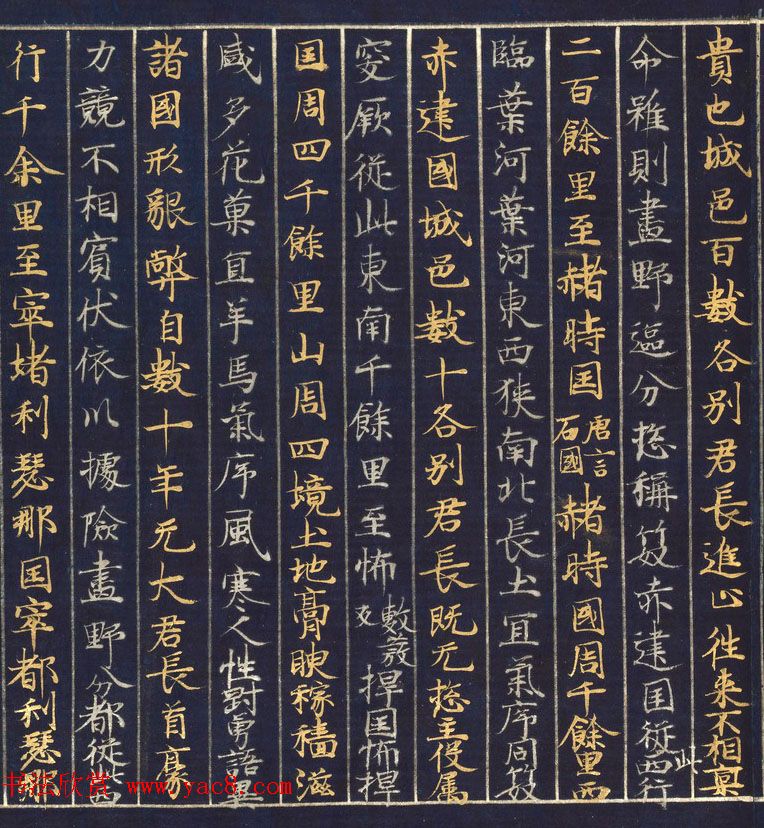 貴也城邑百數各別君長進止往来不相稟
命雖則畫野區分揔稱笯赤建国従此西行
二百餘里至赭時国唐言石國赭時國周千餘里西
臨葉河葉河東西狹南北長土冝氣序同笯
赤建國城邑數十各別君長既无揔主役属
窣厥従此東南千餘里至怖數發反捍国怖捍
国周四千餘里山周四境土地膏腴稼穡滋
盛多花菓冝羊馬氣序風寒人性對勇語異
諸國形貌弊自數十年无大君長首豪
力競不相賓伏依川據險畫野分都従此西
行千余里至窣堵利瑟那国窣都利瑟那
书法欣赏 www.yac8.com